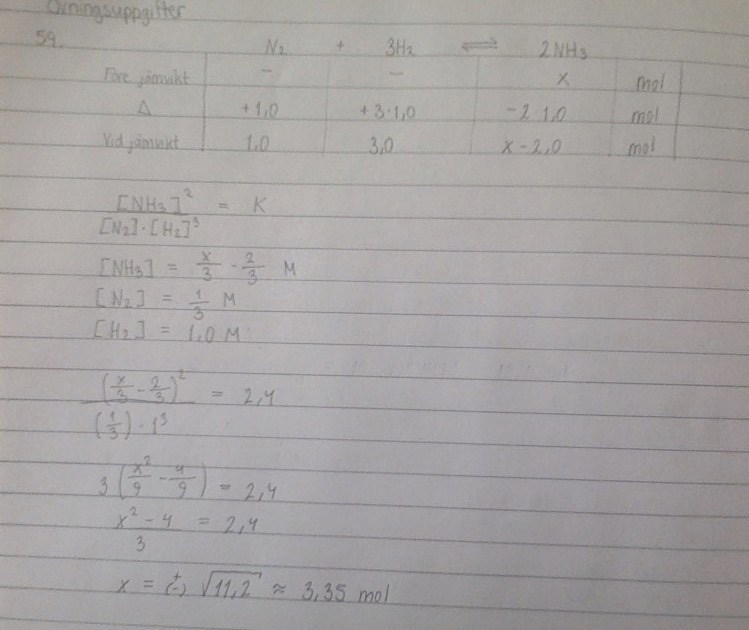 Övningsuppgifter
59. N₂ + 3H₂ ⇌ 2NH₃
Före jämvikt - - x mol
Δ +1,0 +3·1,0 -2 1,0 mol
Vid jämvikt 1,0 3,0 x-2,0 mol
[NH₃]² / [N₂]·[H₂]³ = K
[NH₃] = x/3 - 2/3 M
[N₂] = 1/3 M
[H₂] = 1,0 M
(x/3 - 2/3)² / (1/3)·1³ = 2,4
3(x²/9 - 4/9) = 2,4
x²-4 / 3 = 2,4
x = (±) √11,2 ≈ 3,35 mol